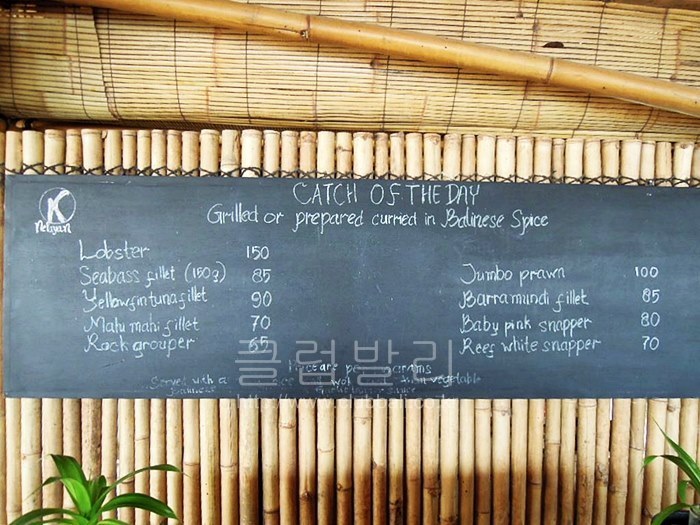 K
Nelayan
CATCH OF THE DAY
Grilled or prepared curried in Balinese Spice
Lobster 150
Seabass fillet (150g) 85
Yellowfin tuna fillet 90
Mahi mahi fillet 70
Rock grouper 65
Jumbo prawn 100
Barramundi fillet 85
Baby pink snapper 80
Reef white snapper 70
클럽발리
Price are per grams
Served with a vegetable